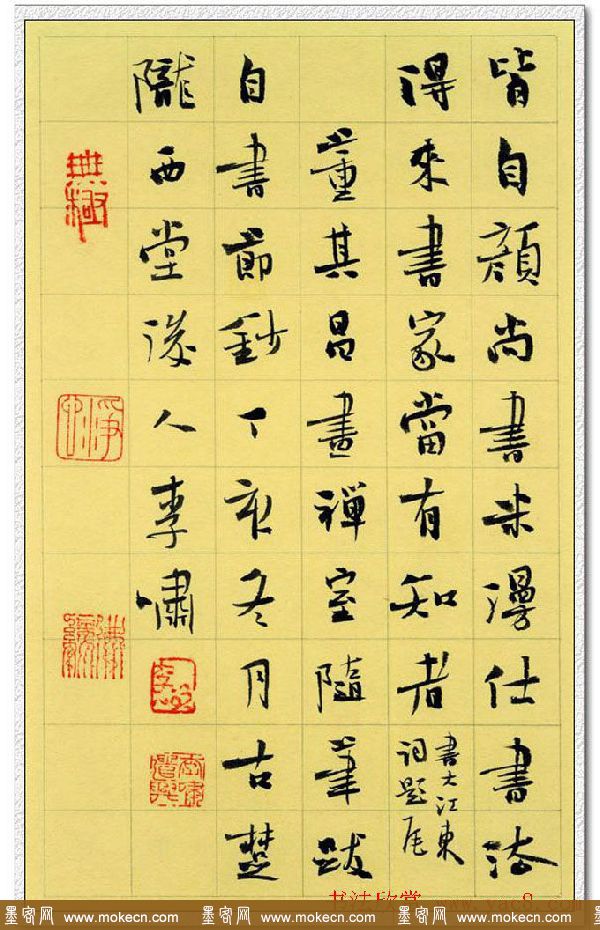 皆自顔尚書米漫仕書法
得來書家當有知者
書大江東
詞題尾
董其昌畫禪室隨筆跋
自書節鈔丁亥冬月古楚
隴西堂後人李嘯
無極
书法欣赏 www.yac8.com
墨客网 www.mokecn.com 墨客网 www.mokecn.com 墨客网 www.mokecn.com